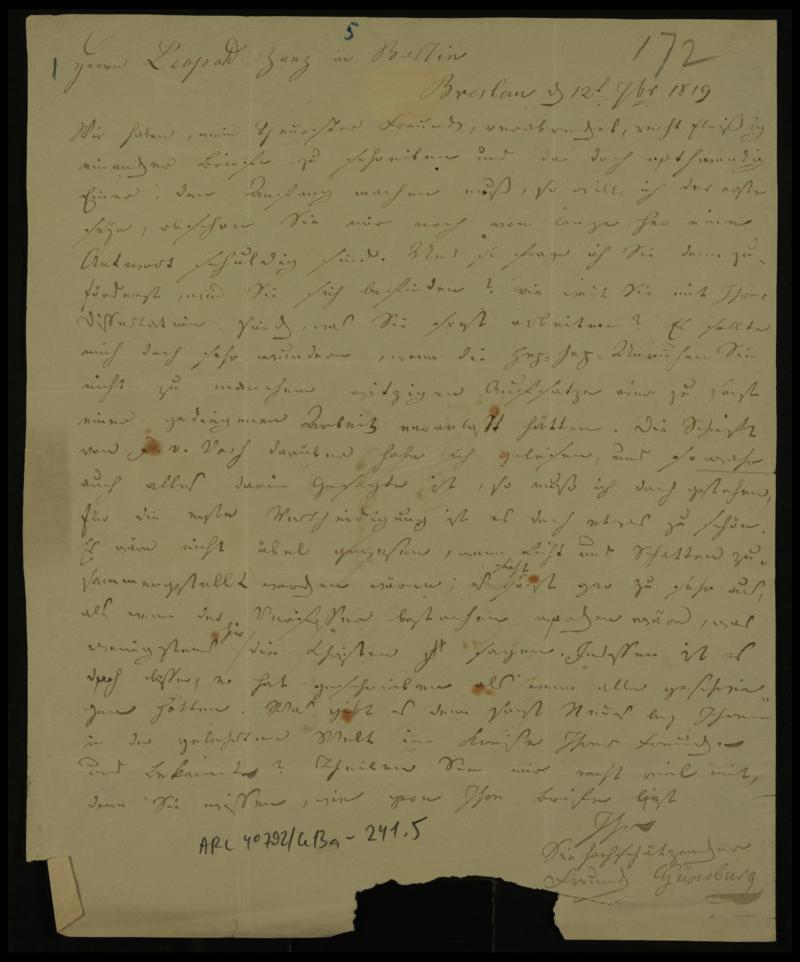 5
172
1 Herrn Leopold Zunz in Berlin
Breslau d 12t 7br 1819
Wir haben, mein theurster Freund, verabredet, recht fleißig
einander Briefe zu schreiben und da doch nothwendig
Einer den Anfang machen muß, so will ich der erste
seyn, obschon Sie mir noch von lange her eine
Antwort schuldig sind. Und so frage ich Sie denn zu-
förderst, wie Sie sich befinden? wie weit Sie mit Ihrer
Dissertation sind, was Sie sonst arbeiten? Es sollte
mich doch sehr wundern, wenn die Hep-Hep-Unruhen Sie
nicht zu manchem witzigen Aufsatze oder zu sonst
einer gediegenen Arbeit veranlaßt hätten. Die Schrift
von J. v. Voß darüber habe ich gelesen, und so wahr
auch alles darin Gesagte ist, so muß ich doch gestehen,
für die erste Vertheidigung ist es doch etwas zu schön.
Es wäre nicht übel gewesen, wenn Licht und Schatten zu-
sammengestellt worden wären; es sieht gar zu sehr aus,
als wenn der Verfasser bestochen worden wäre, was
wenigstens die Christen sagen. Indessen ist es
doch besser, er hat geschrieben als wenn alle geschwie-
gen hätten. Was gibt es denn sonst Neues bey Ihnen
in der gelehrten Welt im Kreise Ihrer Freunde
und Bekannte? Theilen Sie mir recht viel mit,
denn Sie wissen, wie gern Ihre Briefe liest
Ihr
Sie hochschätzender
Freund Günsburg
ARC 40792/G Ba - 241.5